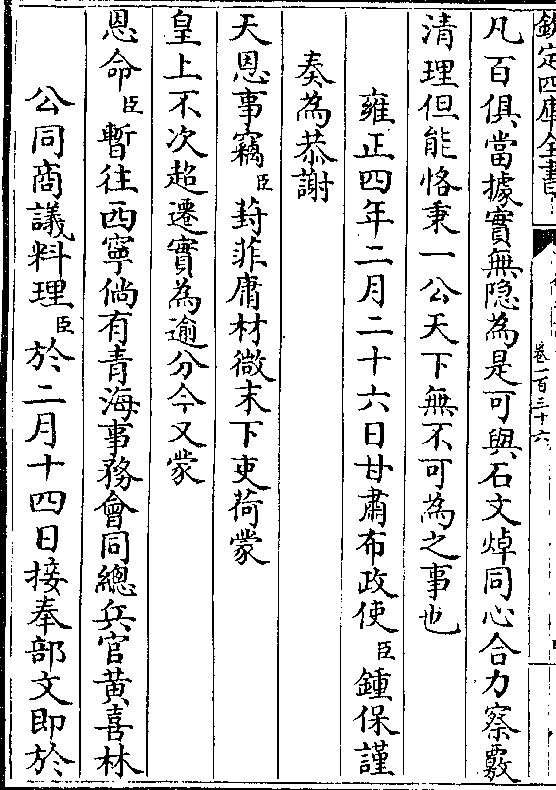 欽定四庫全書
卷一百三十六
凡百俱當據實無隐為是可與石文焯同心合力察覈
清理但能恪秉一公天下無不可為之事也
雍正四年二月二十六日甘肅布政使臣鍾保謹
奏為恭謝
天恩事竊臣葑菲庸材微末下吏荷蒙
皇上不次超遷實為逾分今又蒙
恩命臣暫往西寧倘有青海事務會同總兵官黄喜林
公同商議料理臣於二月十四日接奉部文即於